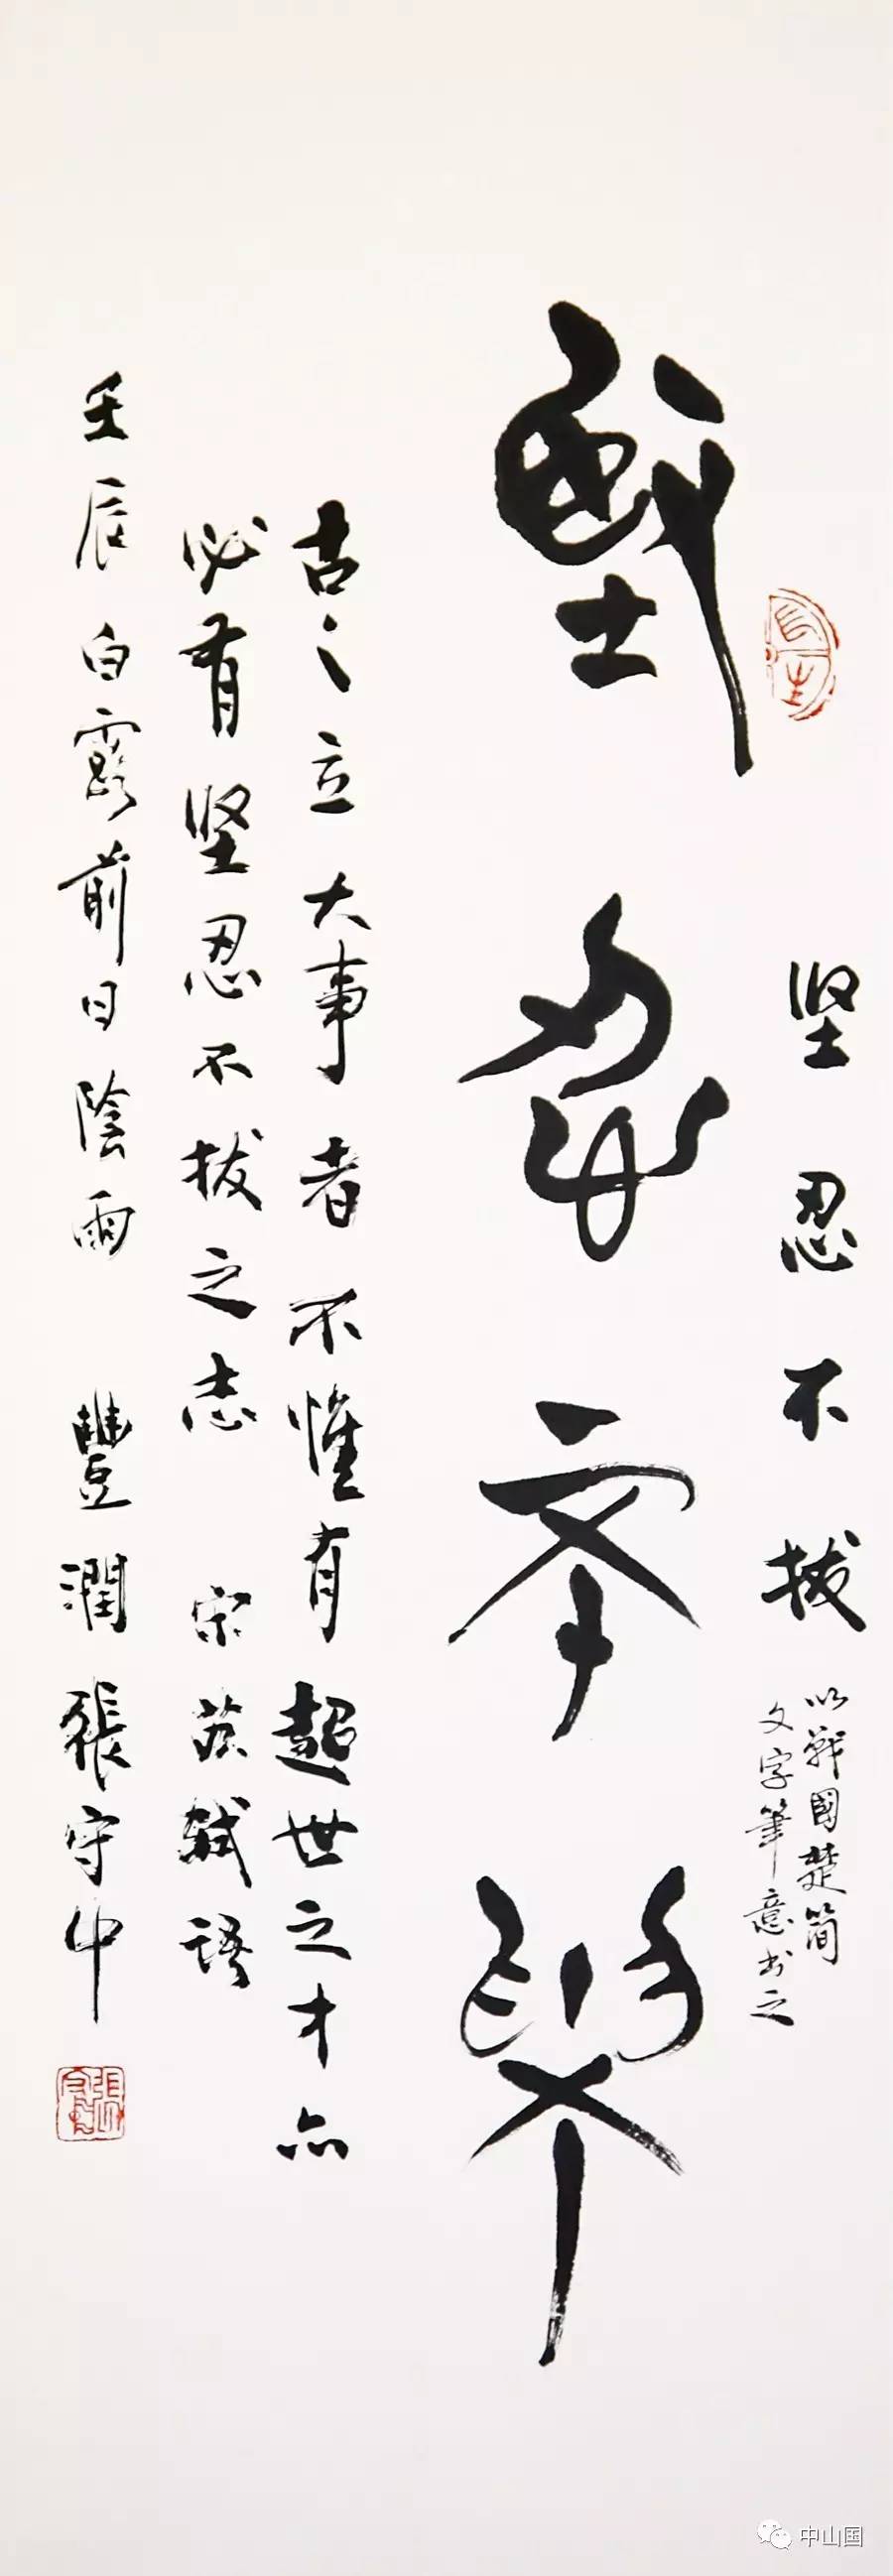 坚忍不拔
以戰國楚简
文字筆意书之
坚忍不拔
古之立大事者不惟有超世之才亦
必有坚忍不拔之志 宋苏轼语
壬辰白露前日陰雨 豐潤張守中
中山国